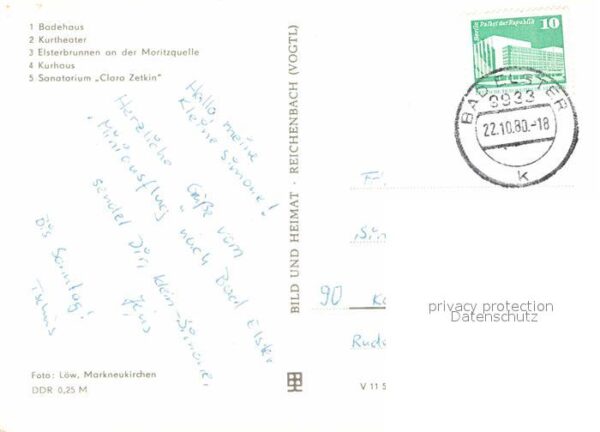 1 Badehaus
2 Kurtheater
3 Elsterbrunnen an der Moritzquelle
4 Kurhaus
5 Sanatorium „Clara Zetkin"
Hallo, meine
kleine Simone!
Herzliche Grüße vom
"Miniausflug" nach Bad Elster
sendet Dir, klein-Simone,
Bis Sonntag!
Tschüs
Foto: Löw, Markneukirchen
DDR 0,25 M
BILD UND HEIMAT · REICHENBACH (VOGTL)
Berlin Palast der Republik
10
DDR
BAD ELSTER
9933
22.10.80.-18
k
90
privacy protection
Datenschutz
V 11 5